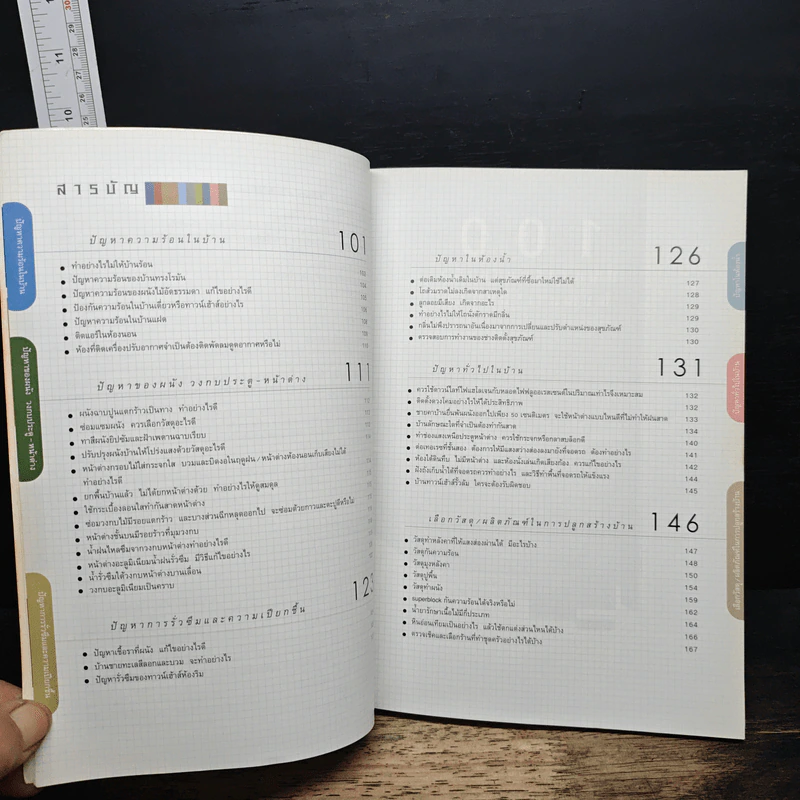 สารบัญ
ปัญหาความร้อนในบ้าน 101
ทำอย่างไรไม่ให้บ้านร้อน
ปัญหาความร้อนของบ้านทรงโรมัน
ปัญหาความร้อนของผนังไม้อัดธรรมดา แก้ไขอย่างไรดี
ป้องกันความร้อนในบ้านเดี่ยวหรือทาวน์เฮ้าส์อย่างไร
ปัญหาความร้อนในบ้านแฝด
ติดแอร์ในห้องนอน
ห้องที่ติดเครื่องปรับอากาศจำเป็นต้องติดพัดลมดูดอากาศหรือไม่
ปัญหาของผนัง วงกบประตู-หน้าต่าง 111
ผนังฉาบปูนแตกร้าวเป็นทาง ทำอย่างไรดี
ซ่อมแซมผนัง ควรเลือกวัสดุอะไรดี
ทาสีผนังยิปซัมและฝ้าเพดานฉาบเรียบ
ปรับปรุงผนังบ้านให้โปร่งแสงด้วยวัสดุอะไรดี
หน้าต่างกรอบไม้ใส่กระจกใส บวมและบิดงอในฤดูฝน / หน้าต่างห้องนอนเก็บเสียงไม่ได้
ทำอย่างไรดี
ยกพื้นบ้านแล้ว ไม่ได้ยกหน้าต่างด้วย ทำอย่างไรให้ดูสมดุล
ใช้กระเบื้องลอนใสทำกันสาดหน้าต่าง
ซ่อมวงกบไม้มีรอยแตกร้าว และบางส่วนฉีกหลุดออกไป จะซ่อมด้วยกาวและตะปูดีหรือไม่
หน้าต่างชั้นบนมีรอยร้าวที่มุมวงกบ
น้ำฝนไหลซึมจากวงกบหน้าต่างทำอย่างไรดี
หน้าต่างอะลูมิเนียมน้ำฝนรั่วซึม มีวิธีแก้ไขอย่างไร
น้ำรั่วซึมใต้วงกบหน้าต่างบานเลื่อน
วงกบอะลูมิเนียมเป็นคราบ
ปัญหาการรั่วซึมและความเปียกชื้น
ปัญหาเชื้อราที่ผนัง แก้ไขอย่างไรดี
บ้านชายทะเลสีลอกและบวม จะทำอย่างไร
ปัญหารั่วซึมของทาวน์เฮ้าส์ห้องริม
ปัญหาในห้องน้ำ 126
ต่อเติมห้องน้ำเดิมในบ้าน แต่สุขภัณฑ์ที่ซื้อมาใหม่ใช้ไม่ได้ 127
โถส้วมราดไม่ลงเกิดจากสาเหตุใด 128
ลูกลอยมีเสียง เกิดจากอะไร 129
ทำอย่างไรไม่ให้โถนั่งดักราดมีกลิ่น 129
กลิ่นไม่พึงปรารถนาอันเนื่องมาจากการเปลี่ยนและปรับตำแหน่งของสุขภัณฑ์ 130
ตรวจสอบการทำงานของช่างติดตั้งสุขภัณฑ์ 130
ปัญหาทั่วไปในบ้าน 131
ควรใช้ดาวน์ไลท์ไฟแฮโลเจนกับหลอดไฟฟลูออเรสเซนต์ในปริมาณเท่าไรจึงเหมาะสม 132
ติดตั้งดวงโคมอย่างไรให้ได้ประสิทธิภาพ 132
ชายคาบ้านยื่นพ้นผนังออกไปเพียง 50 เซนติเมตร จะใช้หน้าต่างแบบไหนดีที่ไม่ทำให้ฝนสาด 133
บ้านลักษณะใดที่จำเป็นต้องทำกันสาด 134
ทำช่องแสงเหนือประตูหน้าต่าง ควรใช้กระจกหรือกลาสบล็อกดี 140
ต่อเทอเรซที่ชั้นสอง ต้องการให้มีแสงสว่างส่องลงมายังที่จอดรถ ต้องทำอย่างไร 141
ห้องใต้ดินทึบ ไม่มีหน้าต่าง และห้องนั่งเล่นเกิดเสียงก้อง ควรแก้ไขอย่างไร 142
ฝังถังเก็บน้ำใต้ที่จอดรถควรทำอย่างไร และวิธีทำพื้นที่จอดรถให้แข็งแรง 144
บ้านทาวน์เฮ้าส์รั้วล้ม ใครจะต้องรับผิดชอบ 145
เลือกวัสดุ/ผลิตภัณฑ์ในการปลูกสร้างบ้าน 146
วัสดุทำหลังคาที่ให้แสงส่องผ่านได้ มีอะไรบ้าง 147
วัสดุกันความร้อน 148
วัสดุมุงหลังคา 150
วัสดุปูพื้น 154
วัสดุทำผนัง 154
superblock กันความร้อนได้จริงหรือไม่ 159
น้ำยารักษาเนื้อไม้มีกี่ประเภท 162
หินอ่อนเทียมเป็นอย่างไร แล้วใช้ตกแต่งส่วนไหนได้บ้าง 164
ตรวจเช็คและเลือกร้านที่ทำชุดครัวอย่างไรได้บ้าง 166
167
ปัญหาความร้อนในบ้าน
ปัญหาของผนัง วงกบประตู-หน้าต่าง
ปัญหาการรั่วซึมและความเปียกชื้น
ปัญหาในห้องน้ำ
ปัญหาทั่วไปในบ้าน
เลือกวัสดุ/ผลิตภัณฑ์ในการปลูกสร้างบ้าน